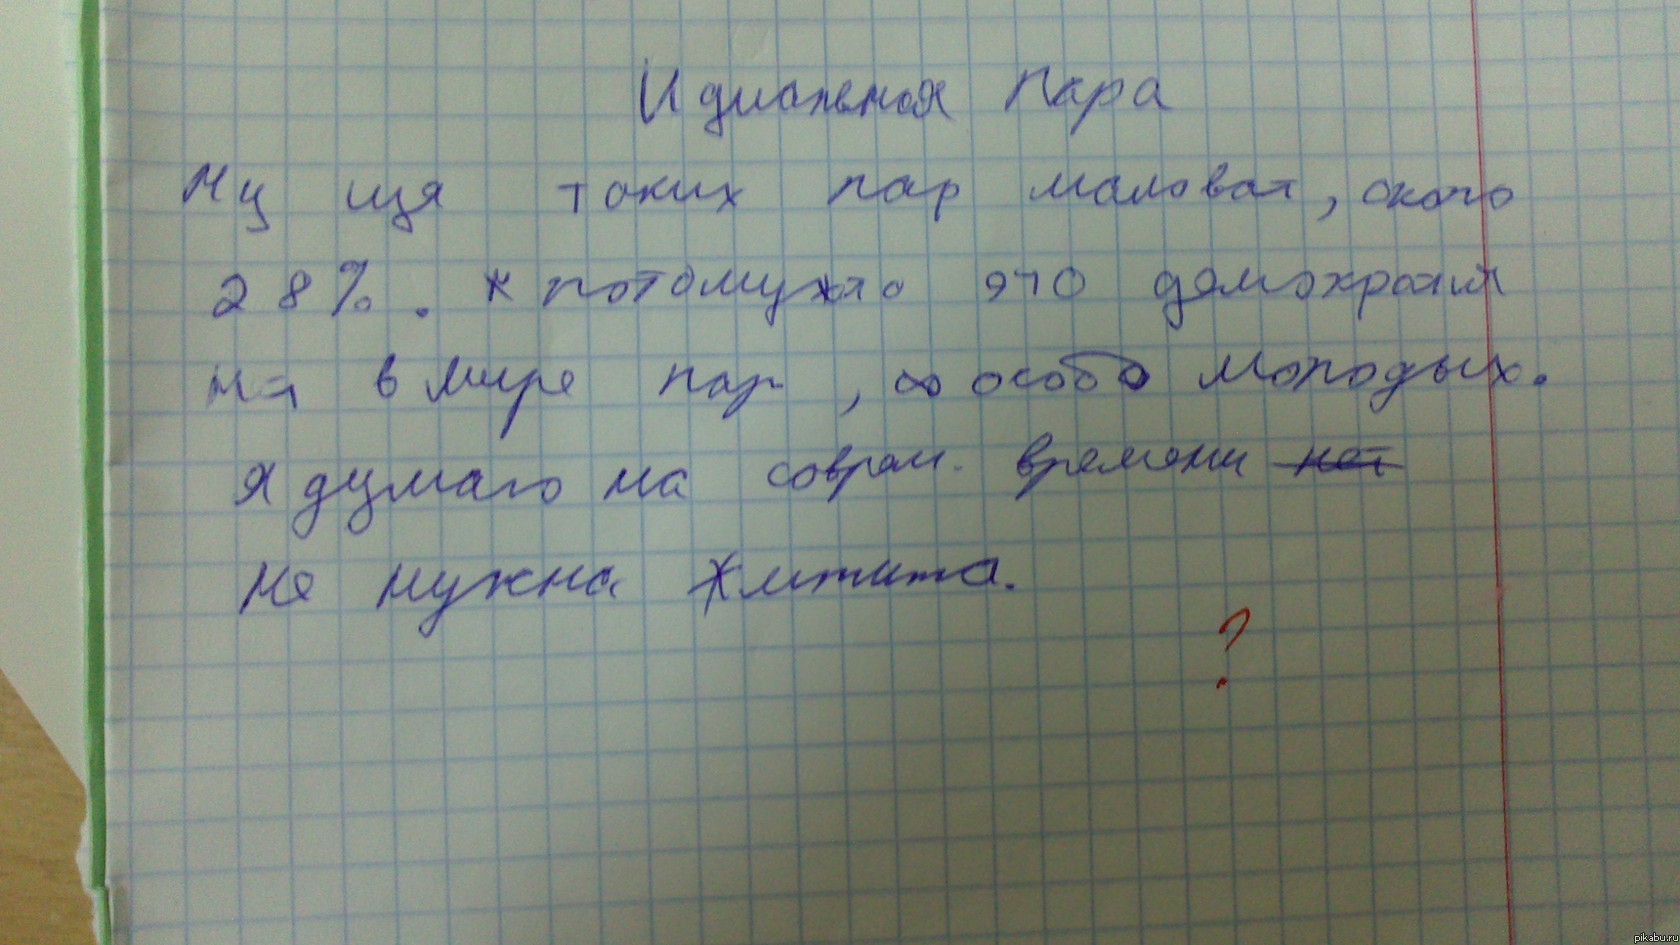 Идиальная пара
Ну ща таких пар маловат, около
28%. потомучто это демократия
на в мире пар, особо молодых.
Я думаю на соврем. времени нет
не нужна
?
pikabu.ru